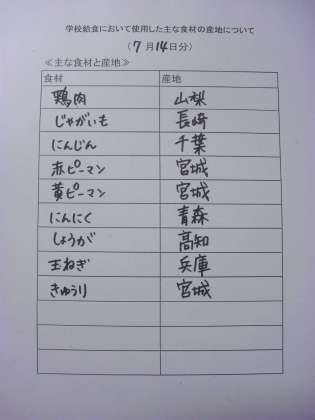 学校給食において使用した主な食材の産地について
(7月14日分)
≪主な食材と産地≫
食材 産地
鶏肉 山梨
じゃがいも 長崎
にんじん 千葉
赤ピーマン 宮城
黄ピーマン 宮城
にんにく 青森
しょうが 高知
玉ねぎ 兵庫
きゅうり 宮城